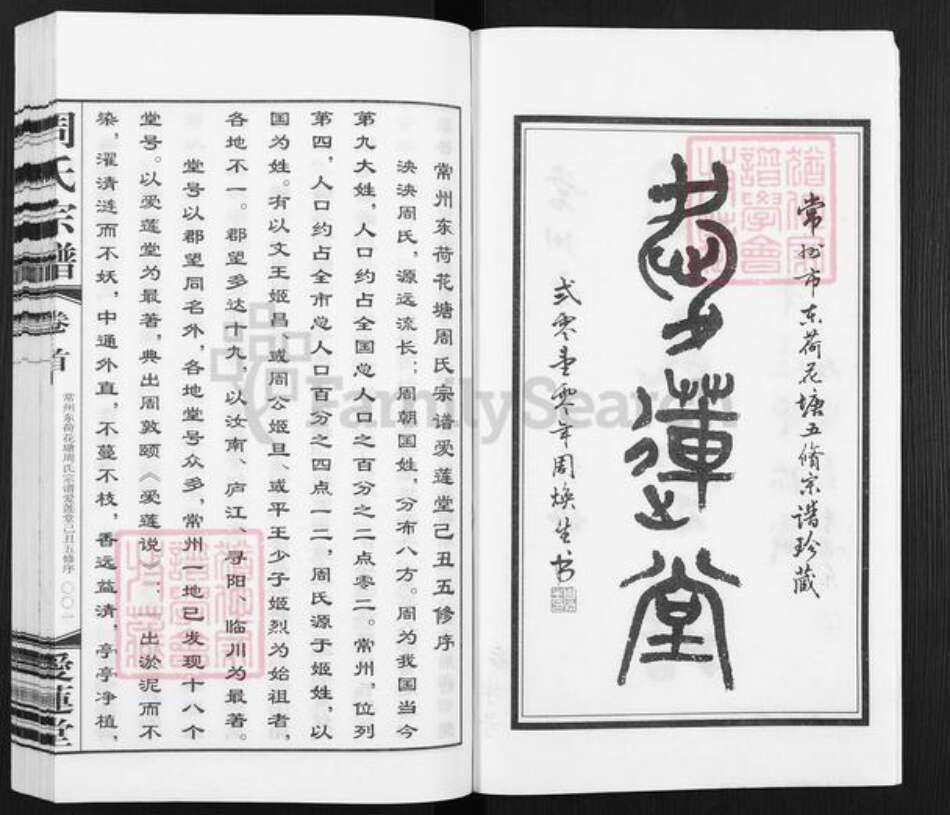 常州市东荷花塘五修宗谱珍藏
愛蓮堂
弍零壹零年周焕生书
常州东荷花塘周氏宗谱爱莲堂己丑五修序
泱泱周氏，源远流长；周朝国姓，分布八方。周为我国当今
第九大姓，人口约占全国总人口之百分之二点零二。常州，位列
第四，人口约占全市总人口百分之四点一二，周氏源于姬姓，以
国为姓。有以文王姬昌、或周公姬旦、或平王少子姬烈为始祖者，
各地不一。郡望多达十九，以汝南、庐江、寻阳、临川为最著。
堂号以郡望同名外，各地堂号众多，常州一地已发现十八个
堂号。以爱莲堂为最著，典出周敦颐《爱莲说》：“出淤泥而不
染，濯清涟而不妖，中通外直，不蔓不枝，香远益清，亭亭净植，
周氏宗譜
卷首
常州东荷花塘周氏宗谱爱莲堂己丑五修序
〇〇一
愛蓮堂
FamilySearch